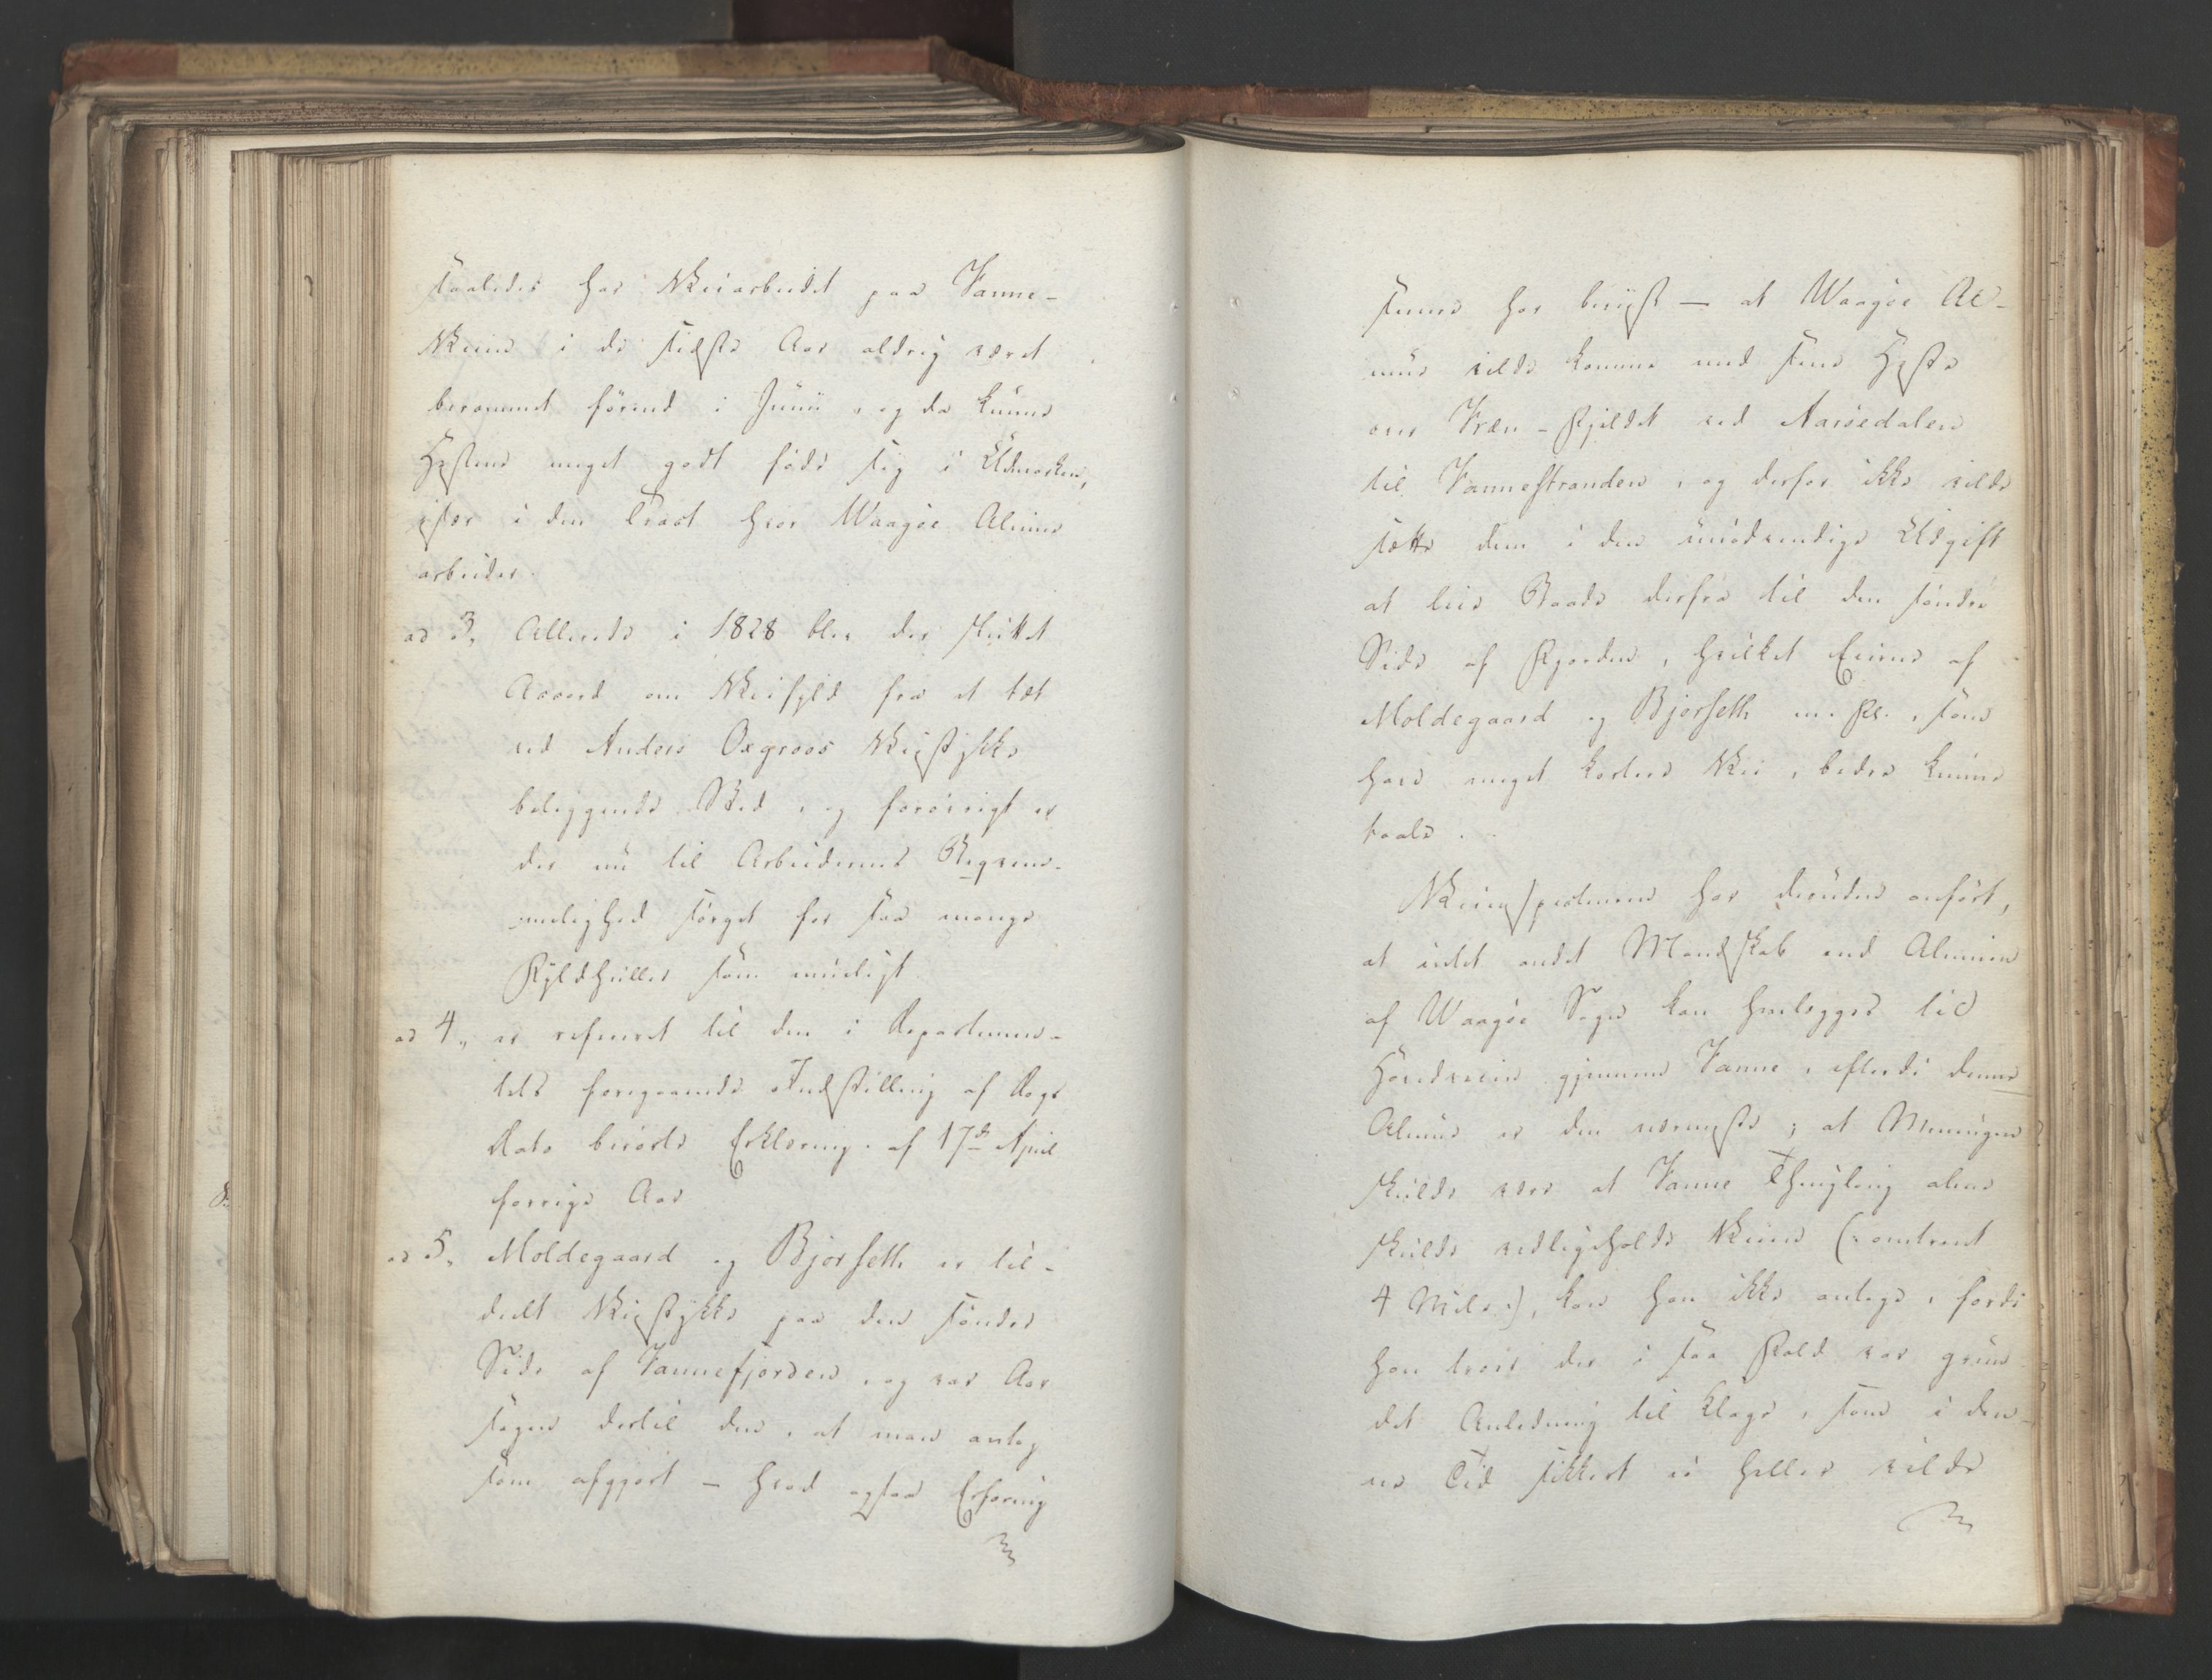 saaledes har Veiarbeidet paa Vanne-
Veien i de sidste Aar aldrig været
berammet förend i Junii, og da kunne
Hestene meget godt föde sig i Udmarken,
især i den Tract hvor Waagøe Almue
arbeider.
ad 3, Allerede i 1828 blev der sluttet
Accord om Veifyld fra et tæt
ved Anders Oxgroos Veistykke
beliggende Sted, og forövrigt er
der nu til Arbeidernes Beqvem-
melighed sörget for saa mange
Fyldhuller som mueligt
ad 4, er refereret til den i Departemen-
tets foregaaende Indstilling af Dags
Dato berörte Erklæring af 17de April
forrige Aar
ad 5, Moldegaard og Bjørseth er til-
deelt Veistykke paa den söndre
Side af Vannefjorden, og var Aar
sagen dertil den, at man antog
som afgjort – hvad ogsaa Erfaring
senere har beviist – at Waagøe Al-
mue vilde komme med sine Heste
over Fræn-Fjeldet ved Aarøedalen
til Vannestranden, og derfor ikke vilde
sætte dem i den unödvendige Udgift
at leie Baade derfra til den söndre
Side af Fjorden, hvilket Eierne af
Moldegaard og Bjørseth m. Fl., som
have meget kortere Vei, bedre kunne
taale.
Veiinspecteuren har desuden anført,
at intet andet Mandskab end Almuen
af Waagøe Sogn kan henlægges til
Hovedveien gjennem Vanne, efterdi denne
Almue er den nærmeste; at Meningen
skulde være at Vanne Thinglaug alene
skulde vedligeholde Veien (: omtrent
4 Mile :), kan han ikke antage, fordi
han troer der i saa Fald var grun
det Anledning til Klage, som i den-
ne Tid sikkert ei heller vilde